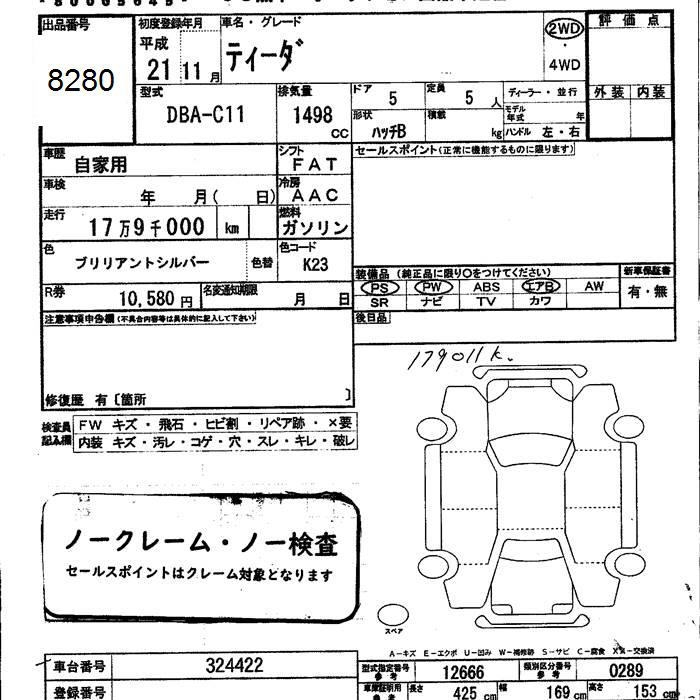 出品番号
8280
初度登録年月
平成
21 11 月
車名・グレード
ティーダ
2WD
・
4WD
評価点
外装 内装
型式
DBA-C11
排気量
1498
CC
ドア 5
定員 5 人
ディーラー・並行
形状 ハッチB
積載 kg
モデル年式 年
ハンドル 左・右
車歴 自家用
シフト FAT
セールスポイント(正常に機能するものに限ります)
車検 年 月( 日)
冷房 AAC
走行 17万9千000 km
燃料 ガソリン
色 ブリリアントシルバー 色替
色コード K23
装備品(純正品に限り○をつけてください)
新車保証書
PS PW ABS エアB AW
有・無
SR ナビ TV カワ
R券 10,580円
名変通知期限 月 日
注意事項申告欄(不具合内容等は具体的に記入して下さい)
後日品
179011k.
修復歴 有〔箇所 〕
検査員記入欄
FW キズ・飛石・ヒビ割・リペア跡・×要
内装 キズ・汚レ・コゲ・穴・スレ・キレ・破レ
ノークレーム・ノー検査
セールスポイントはクレーム対象となります
スペア
A-キズ E-エクボ U-凹み W-補修跡 S-サビ C-腐食 XX-交換済
車台番号 324422
型式指定番号 参考 12666
類別区分番号 参考 0289
登録番号
車庫証明用 参考
長さ 425 cm
幅 169 cm
高さ 153 cm